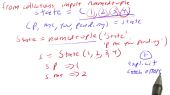 from collections import namedtuple
state = (1, 2, 3, 4)
(p, me, you, pending) = state
State = namedtuple('State', 'p me you pending')
s = State(1, 2, 3, 4)
s.p → 1
s.me → 2
+
explicit